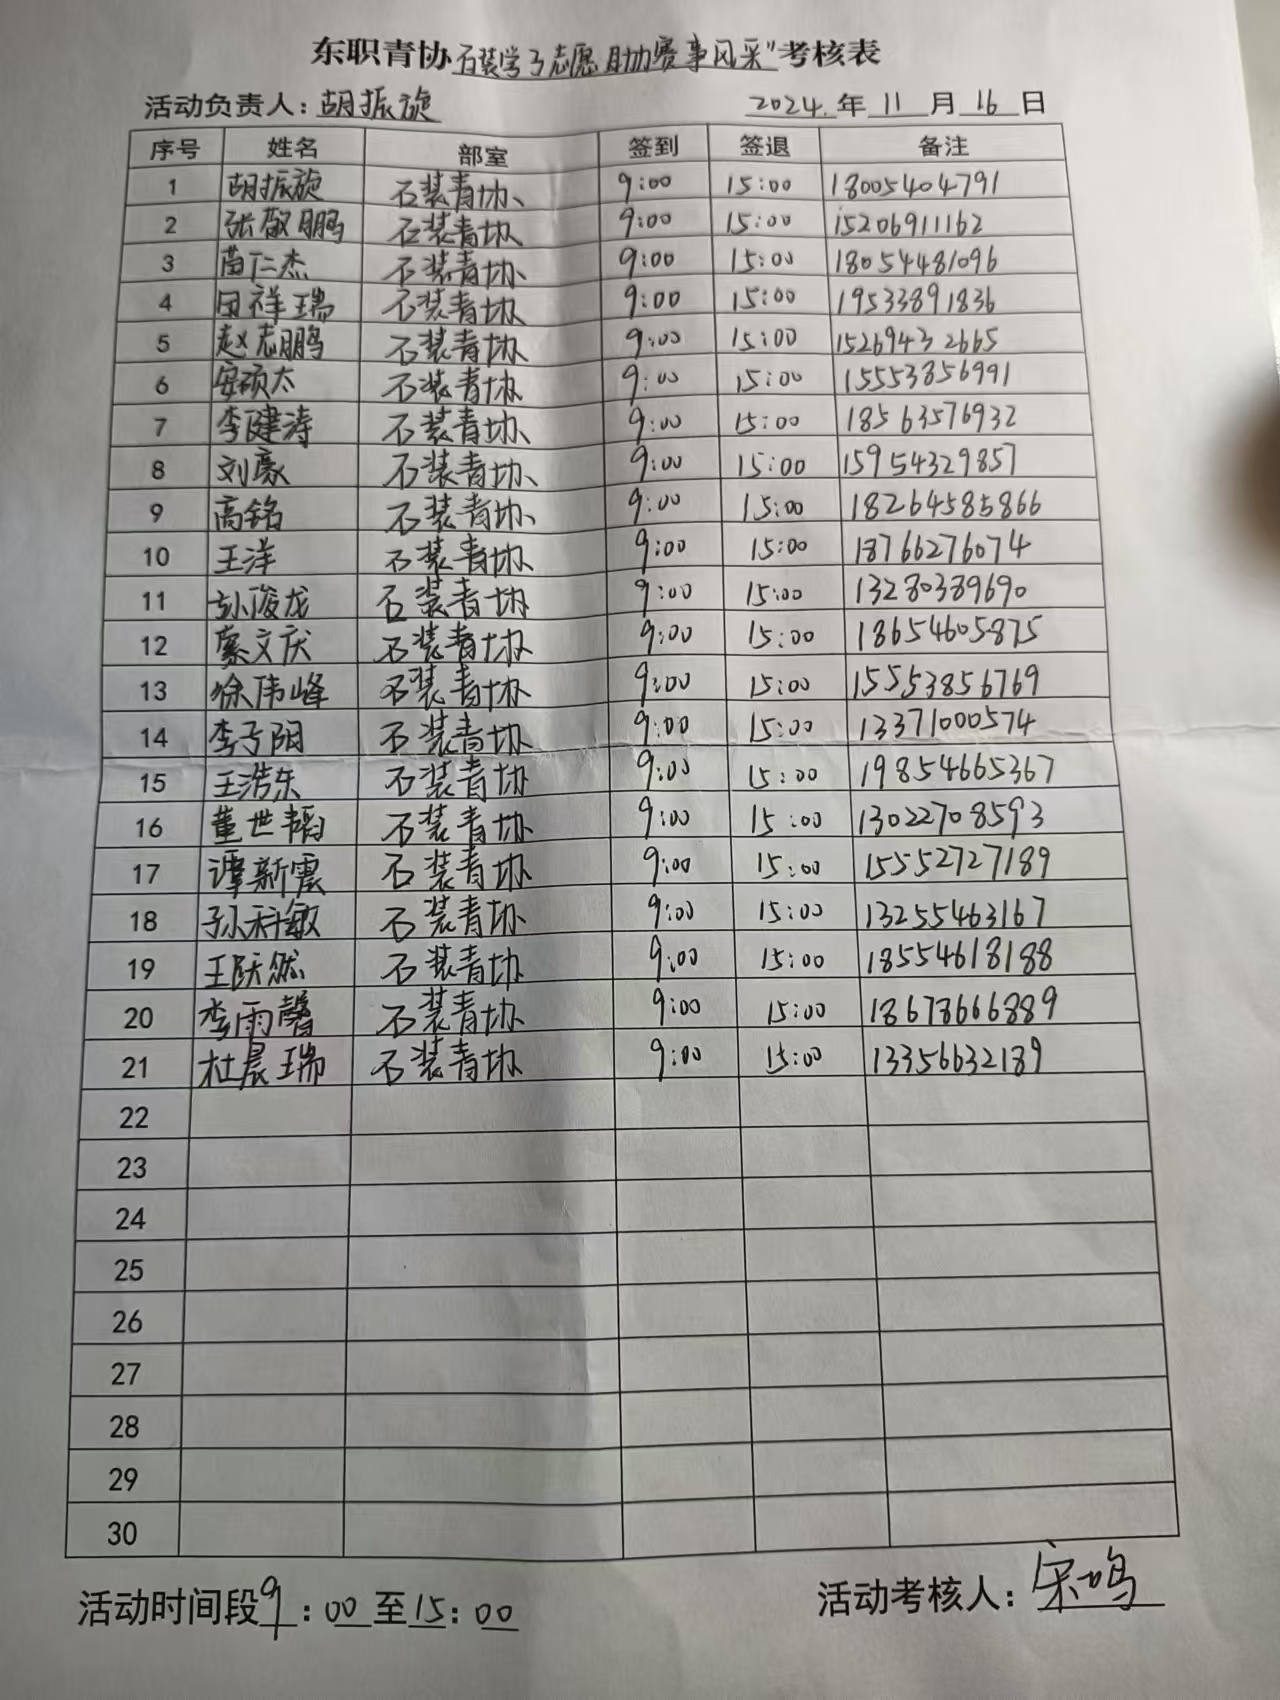 东职青协石装学子志愿助赛事风采"考核表
活动负责人：胡振旋 2024.年11月16日
序号 姓名 部室 签到 签退 备注
1 胡振旋 石装青协 9:00 15:00 18005404791
2 张敬鹏 石装青协 9:00 15:00 15206911162
3 苗仁杰 石装青协 9:00 15:00 18054481096
4 田祥瑞 石装青协 9:00 15:00 19533891836
5 赵志鹏 石装青协 9:00 15:00 15269432665
6 安硕太 石装青协 9:00 15:00 15553856991
7 李建涛 石装青协 9:00 15:00 18563576932
8 刘豪 石装青协 9:00 15:00 15954329857
9 高铭 石装青协 9:00 15:00 18264585866
10 王洋 石装青协 9:00 15:00 18766276074
11 彭俊龙 石装青协 9:00 15:00 13280389690
12 綦文庆 石装青协 9:00 15:00 18654605875
13 徐伟峰 石装青协 9:00 15:00 15553856769
14 李子阳 石装青协 9:00 15:00 13371000574
15 王浩东 石装青协 9:00 15:00 19854665367
16 董世韬 石装青协 9:00 15:00 13022708593
17 谭新震 石装青协 9:00 15:00 15552727189
18 孙科敏 石装青协 9:00 15:00 13255463167
19 王跃然 石装青协 9:00 15:00 18554618188
20 李雨馨 石装青协 9:00 15:00 18678666889
21 杜晨瑞 石装青协 9:00 15:00 13356632189
22
23
24
25
26
27
28
29
30
活动时间段9:00至15:00 活动考核人：宋鸣